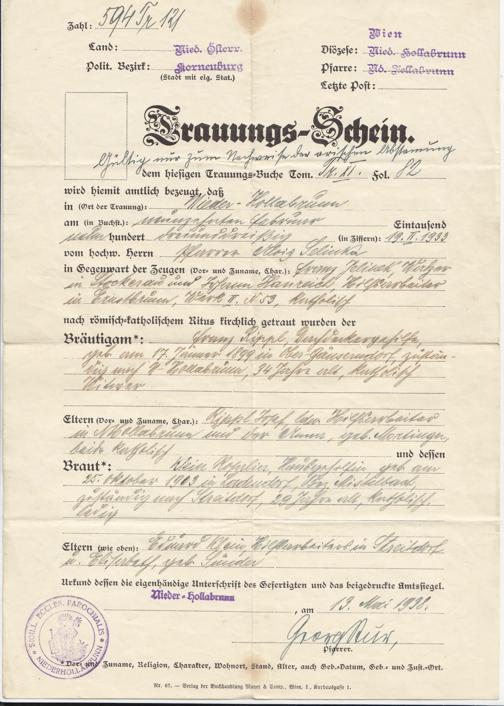 Zahl: 594 Tr 121
Wien
Land: Nied. Österr.
Diözese: Nied. Hollabrunn
Polit. Bezirk: Korneuburg
Pfarre: Nd. Hollabrunn
(Stadt mit eig. Stat.)
Letzte Post:
Trauungs-Schein.
Gültig nur zum Nachweise der arischen Abstammung
dem hiesigen Trauungs-Buche Tom. Fol. 82
wird hiemit amtlich bezeugt, daß
in (Ort der Trauung) Nieder-Hollabrunn
am (in Buchst.): neunzehnten Februar Eintausend
neun hundert dreiunddreißig (in Ziffern): 19. II. 1933
vom hochw. Herrn Pfarrer Alois Jelinka
in Gegenwart der Zeugen (Vor- und Zuname, Char.): Franz
in Stockerau und Johann Hilfsarbeiter
in Ernstbrunn, N. 53, katholisch
nach römisch-katholischem Ritus kirchlich getraut wurden der
Bräutigam*: Franz Rippl,
geb. am 17. Jänner 1899 in Ober-Gänserndorf, zustän-
dig nach N. Hollabrunn, 34 Jahre alt, katholisch
Witwer
Eltern (Vor- und Zuname, Char.): Rippl Josef Hilfsarbeiter
in N. Hollabrunn und der Anna, geb.
beide katholisch und dessen
Braut*: Klein Rosalia, geb. am
25. Oktober 1903 in Ladendorf, Bez. Mistelbach,
zuständig nach Streitdorf, 29 Jahre alt, katholisch
ledig
Eltern (wie oben): Eduard Klein, Hilfsarbeiters in Streitdorf
u. Elisabeth, geb. Sünder
Urkund dessen die eigenhändige Unterschrift des Gefertigten und das beigedruckte Amtssiegel.
Nieder-Hollabrunn
, am 13. Mai 1938.
Georg
Pfarrer.
SIGILL. ECCLES. PAROCHIALIS
NIEDERHOLLABRUNN
*Vor- und Zuname, Religion, Charakter, Wohnort, Stand, Alter, auch Geb.-Datum, Geb.- und Zust.-Ort.
Nr. 67. — Verlag der Buchhandlung Mayer & Comp., Wien, I., Kurhausgasse 1.